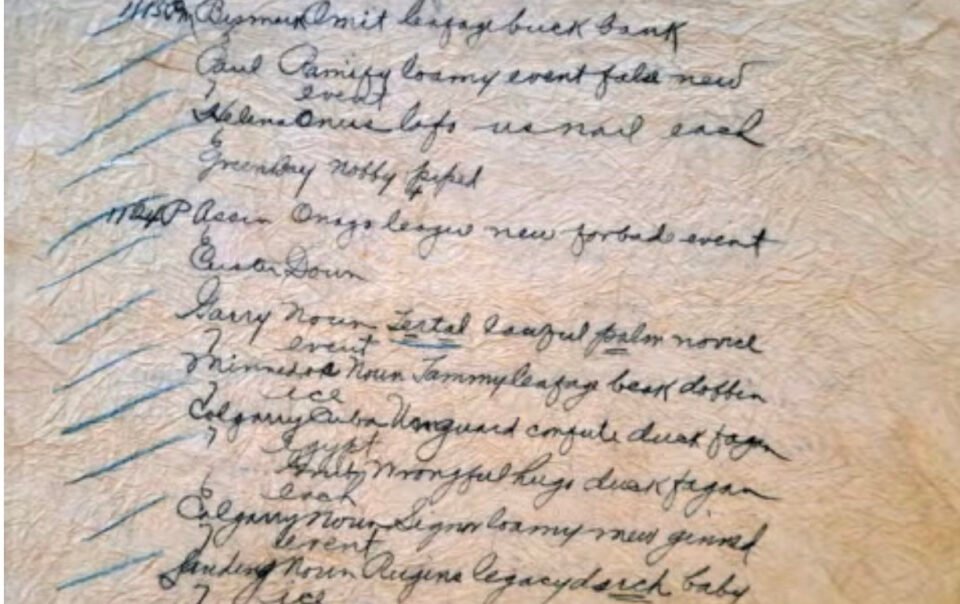 1113 Pm Bismark Omit leafage buck bank
Paul Ramify loamy event false new
event
Helena Onus lofo us nail each
Greenbay nobby piped
1124 P Assin Onago league new forbad event
Custer Down
Garry Noun Tertal lawful palm novice
event
Minnedos Noun Jammy leafage beak dobbin
ice
Calgarry Cuba Unguard confute duck fagan
Egypt
Wrongful hugo duck fagan
each
Calgarry Noun Signor loamy new ginned
event
Landing Noun Rugins legacy duch baby
ice